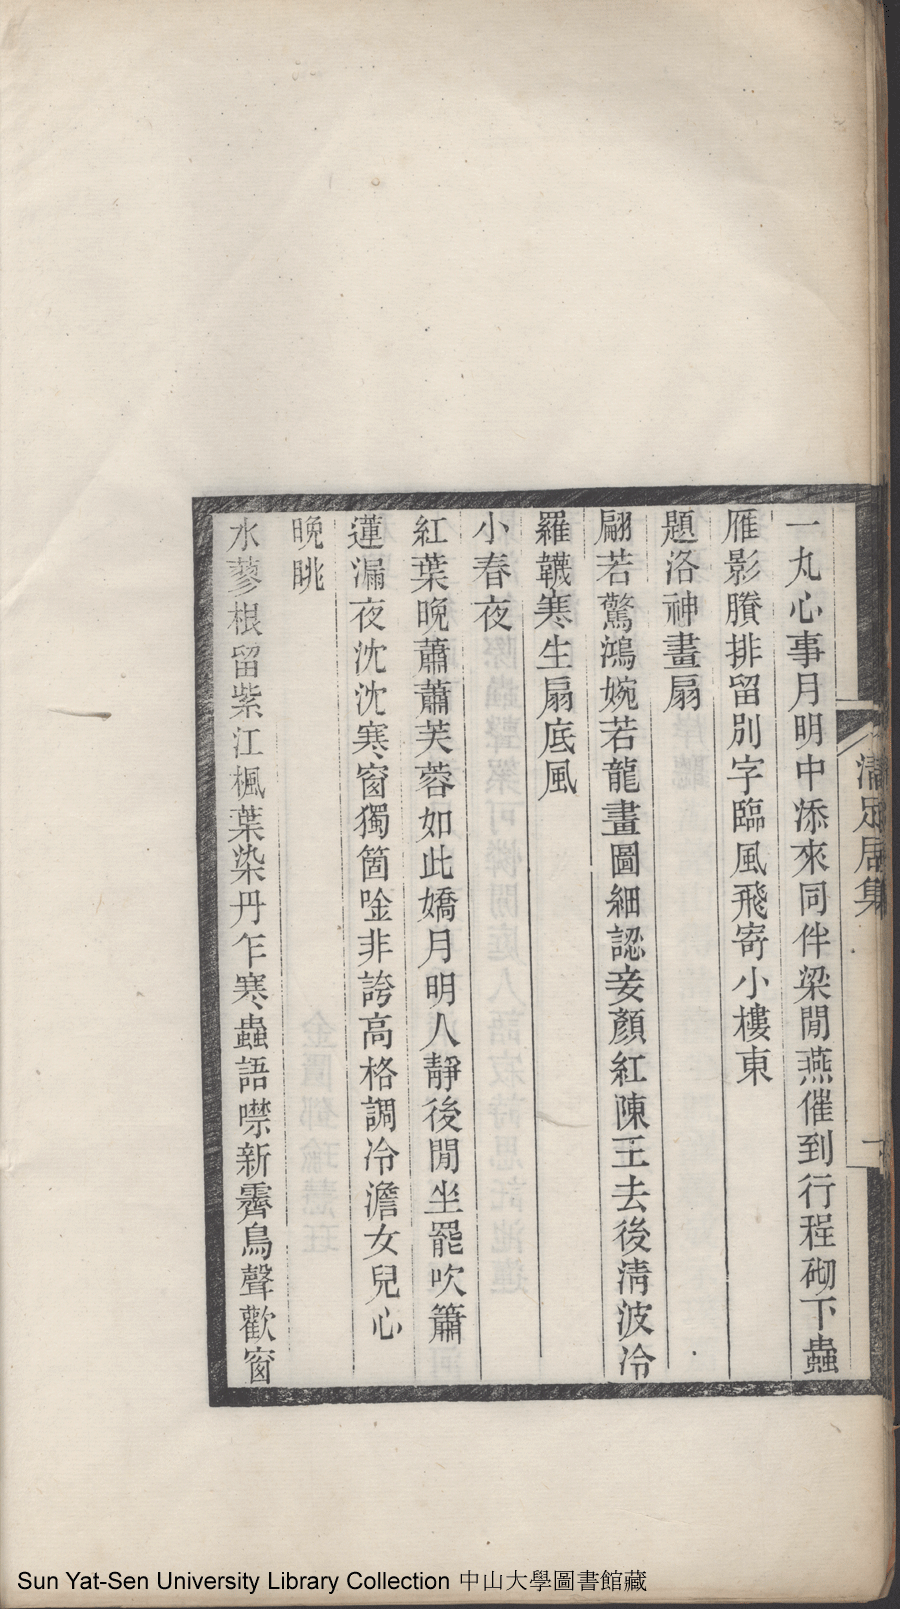 一丸心事月明中添來同伴梁閒燕催到行程砌下蟲
雁影賸排留別字臨風飛寄小樓東
題洛神畫扇
翩若驚鴻婉若龍畫圖細認妾顏紅陳王去後清波冷
羅韈寒生扇底風
小春夜
紅葉晚蕭蕭芙蓉如此嬌月明人靜後閒坐罷吹簫
蓮漏夜沈沈寒窗獨箇唫非誇高格調冷澹女兒心
晚眺
水蓼根留紫江楓葉染丹乍寒蟲語噤新霽鳥聲歡窗
足居集
Sun Yat-Sen University Library Collection 中山大學圖書館藏